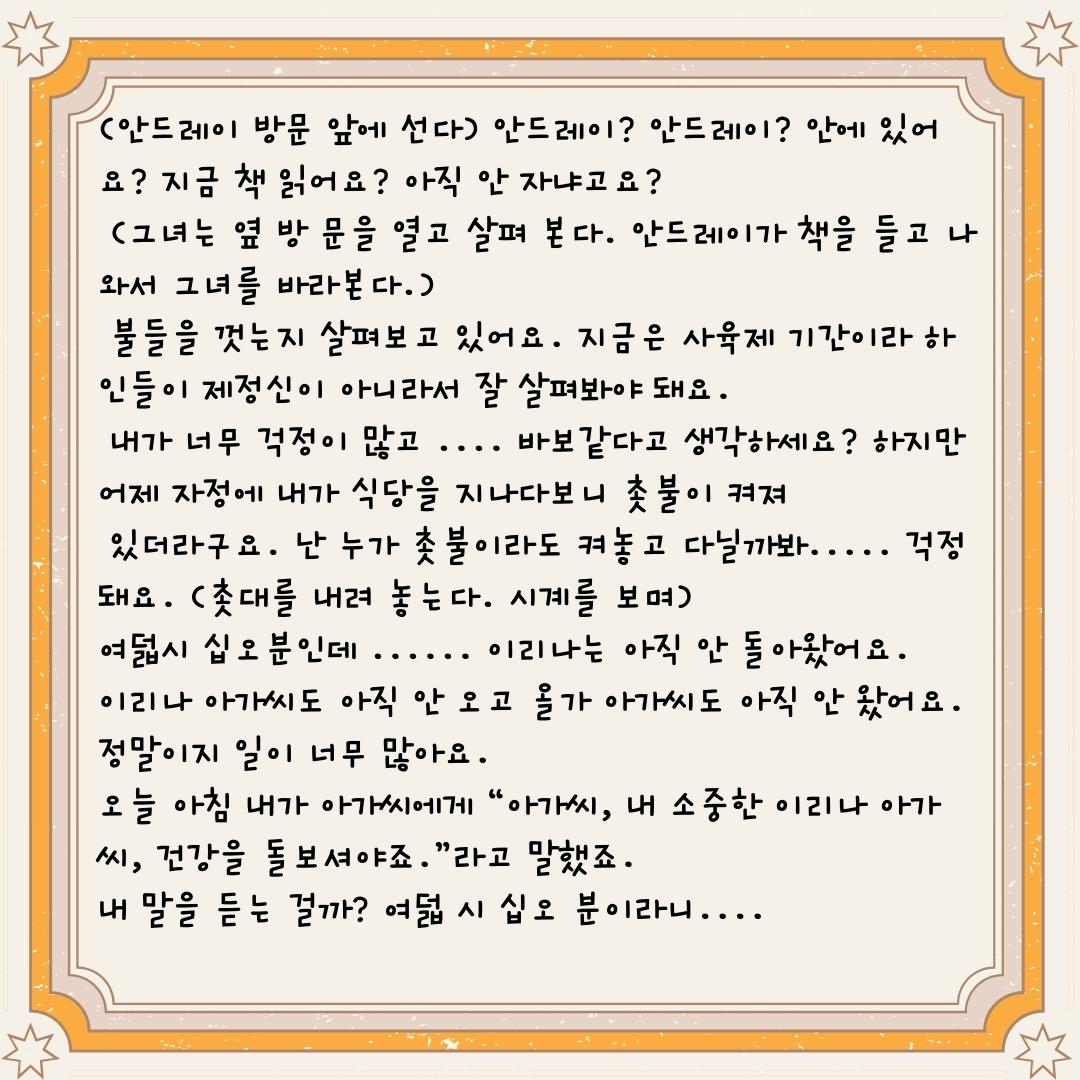 (안드레이 방문 앞에 선다) 안드레이? 안드레이? 안에 있어
요? 지금 책 읽어요? 아직 안 자냐고요?
(그녀는 옆 방 문을 열고 살펴 본다. 안드레이가 책을 들고 나
와서 그녀를 바라본다.)
불들을 껏는지 살펴보고 있어요. 지금은 사육제 기간이라 하
인들이 제정신이 아니라서 잘 살펴봐야 돼요.
내가 너무 걱정이 많고 .... 바보같다고 생각하세요? 하지만
어제 자정에 내가 식당을 지나다보니 촛불이 켜져
있더라구요. 난 누가 촛불이라도 켜놓고 다닐까봐..... 걱정
돼요. (촛대를 내려 놓는다. 시계를 보며)
여덟시 십오분인데 ...... 이리나는 아직 안 돌아왔어요.
이리나 아가씨도 아직 안 오고 올가 아가씨도 아직 안 왔어요.
정말이지 일이 너무 많아요.
오늘 아침 내가 아가씨에게 “아가씨, 내 소중한 이리나 아가
씨, 건강을 돌보셔야죠.”라고 말했죠.
내 말을 듣는 걸까? 여덟 시 십오 분이라니....